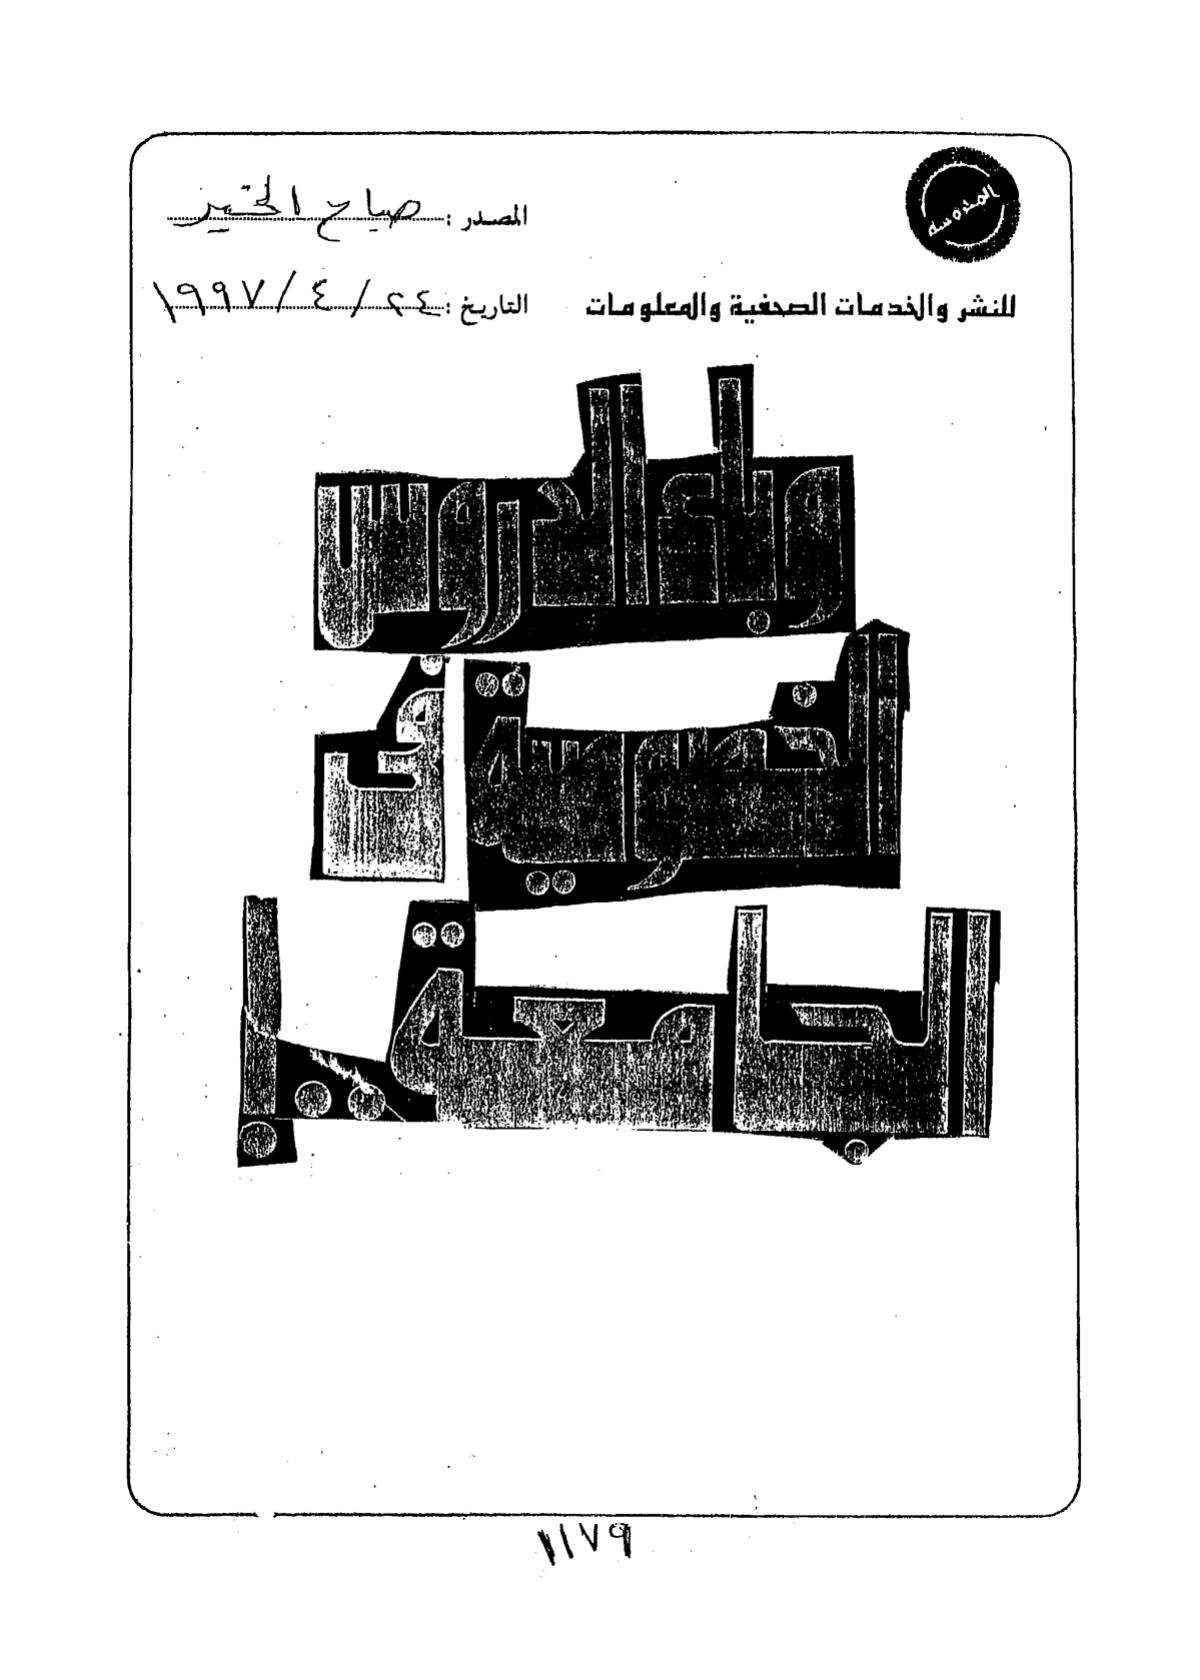 المدرسة
المصدر : صباح الخير
للنشر والخدمات الصحفية والمعلومات
التاريخ : ٢٤ / ٤ / ١٩٩٧
وباء الدروس
الخصوصية فى
الجامعة !..
١١٧٩